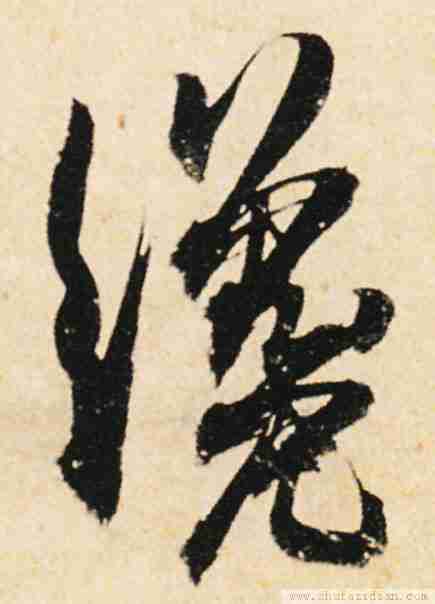 纔
www.shufazidian.com